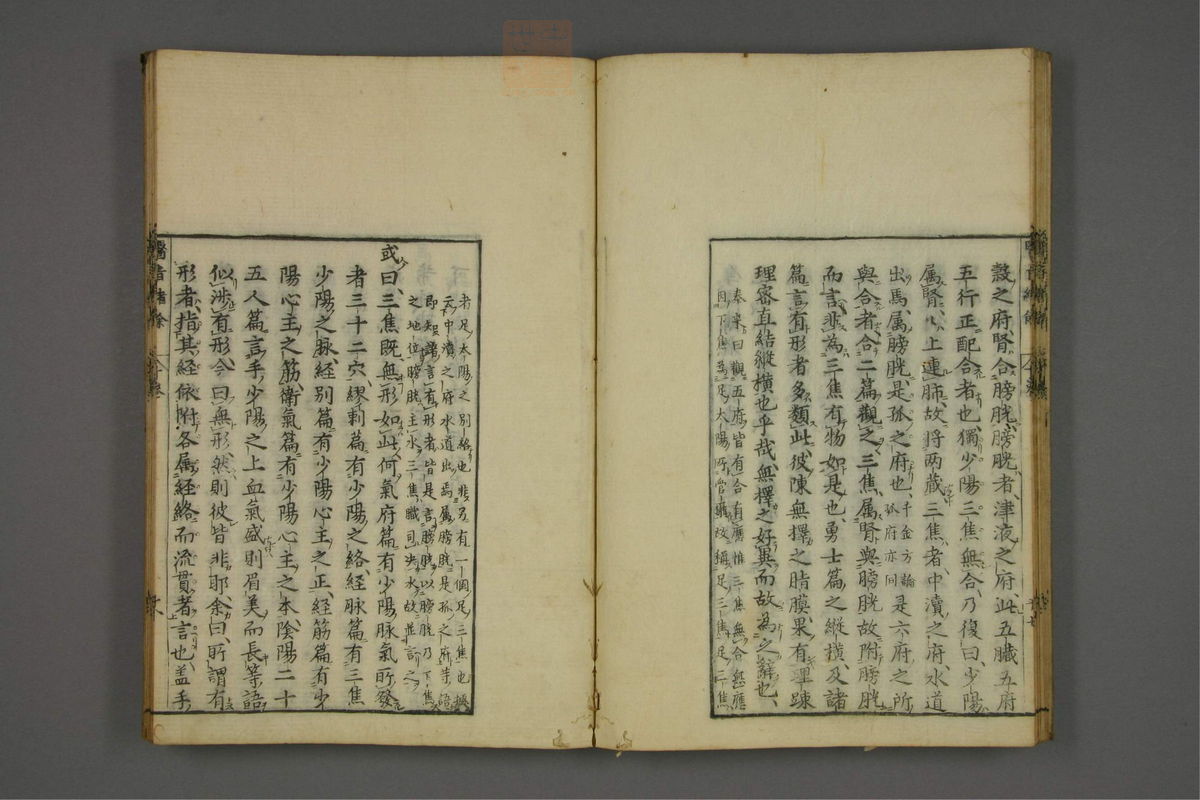 殼之府、腎合膀胱、膀胱者、津液之府、此五臓五府
五行正配合者也、獨少陽三焦無合、乃復曰、少陽
属腎、腎上連肺、故將两藏三焦者中瀆之府水道
出焉、属膀胱是孤之府也、千金方論孤府亦同是六府之所
與合者、合二篇觀之、三焦属腎與膀胱故附膀胱
而言、非為三焦有物如是也、勇士篇之縱横及諸
篇言有形者多類此、彼陳無擇之脂膜果有理踈
理密直結縱横也乎哉、無擇之好異而故為之辭也、
奉來曰觀五府皆有合有應惟三焦無合無應
因下焦為足太陽所管轄故稱足三焦足三焦
者足太陽之別絡也非另有一個足三焦也據
云中瀆之府水道出焉属膀胱是孤之府等語
即知諸言有形者皆是言膀胱以膀胱乃下焦
之地位膀胱主水三焦職司决水故並言之
或曰、三焦既無形、如此何氣府篇有少陽脉氣所發
者三十二穴、繆刺篇有少陽之絡、経脉篇有三焦
少陽之脉、経別篇有少陽心主之正、経筋篇有少
陽心主之筋、衛氣篇有少陽心主之本、陰陽二十
五人篇言手少陽之上血氣盛則眉美而長等語
似涉有形、今曰無形、然則彼皆非耶、余曰、所謂有
形者、指其経依附各属経絡而流貫者言也、盖手